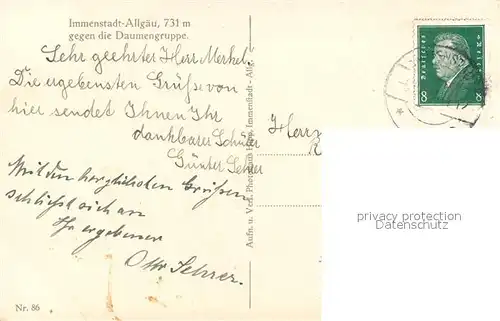 Immenstadt-Allgäu, 731 m
gegen die Daumengruppe.
Sehr geehrter Herr Merkel.
Die ergebensten Grüße von
hier sendet Ihnen Ihr
dankbarer Schüler
Günter Sehrer
Mit den herzlichsten Grüßen
schließt sich an
Ihr ergebener
Otto Sehrer.
Nr. 86
Aufn. u. Verl. Immenstadt - Allg.
Herrn
Deutsches Reich
8 8
privacy protection
Datenschutz